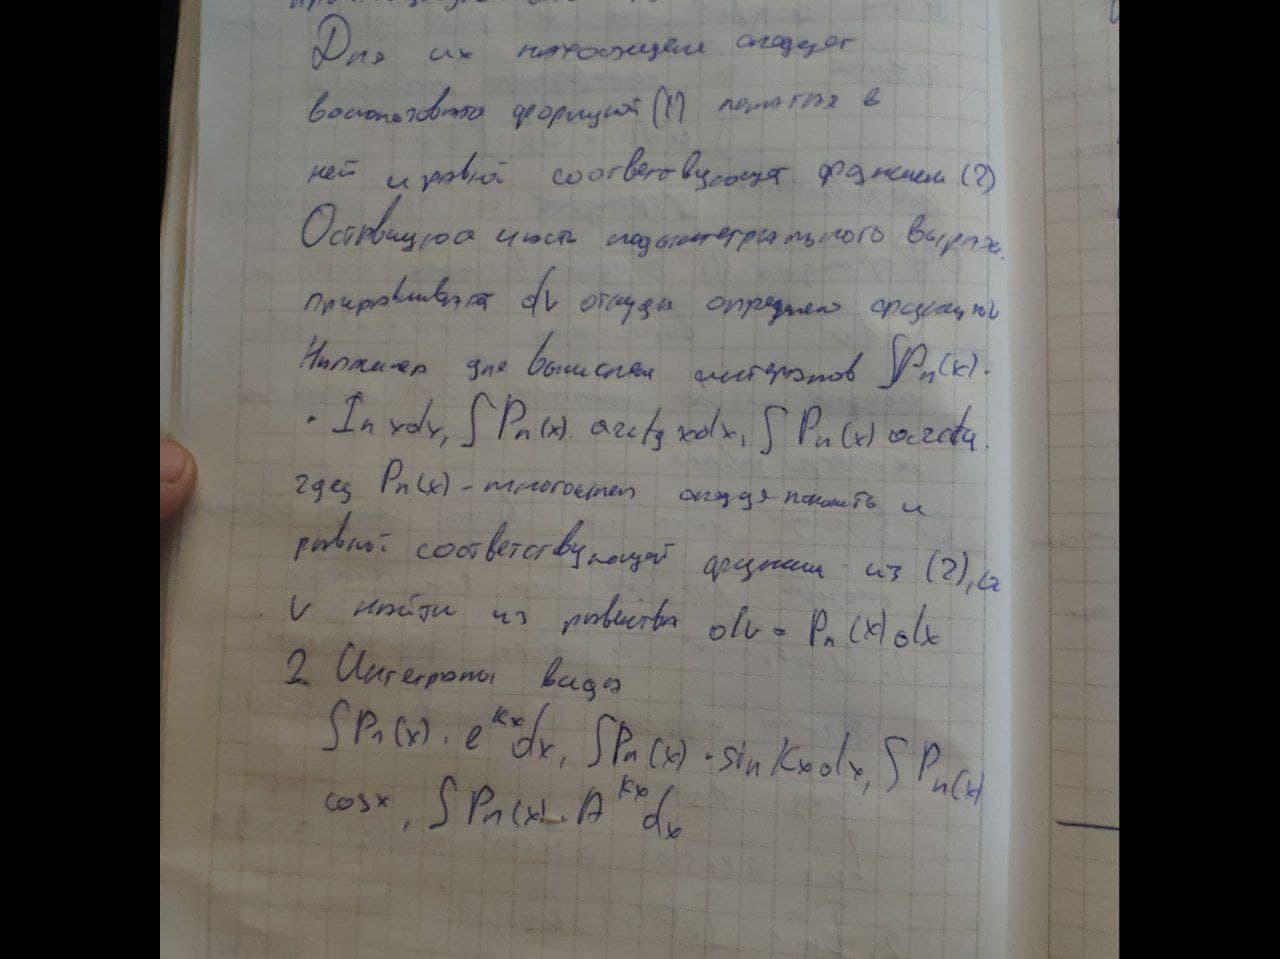 Для их нахождения следует
воспользоваться формулой (1) полагая в
ней u равной соответствующей функции (2)
Оставшуюся часть подынтегрального выраж.
приравнивать dv откуда определяю функцию v
Например для вычислен интегралов ∫Pn(x)·
· ln xdx, ∫ Pn(x). arctg xdx, ∫ Pn(x) arcctg.
где Pn(x) - многочлен следуя положить u
равной соответствующей функции из (2), а
v найти из равенства dv = Pn(x)dx
2. Интегралы вида
∫Pn(x) · e^kx dx, ∫Pn(x) · sin kxdx, ∫ Pn(x)
cosx, ∫ Pn(x) · A^kx dx